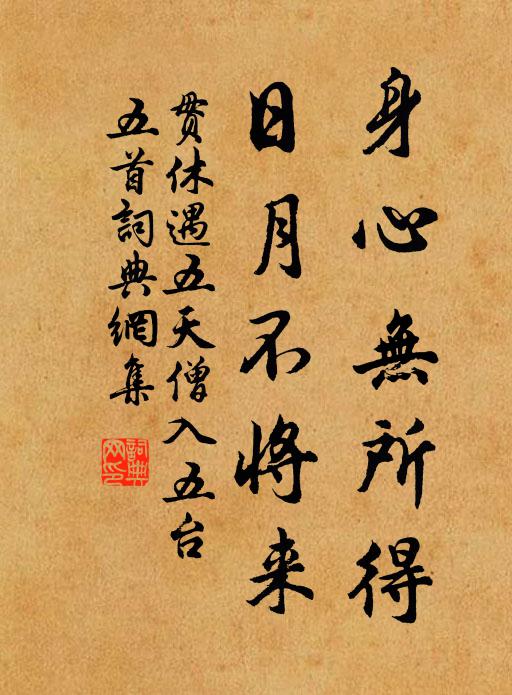 身心無所得
日月不将来
貫休遇五天僧入五台
五首詞典網集
詞典網印